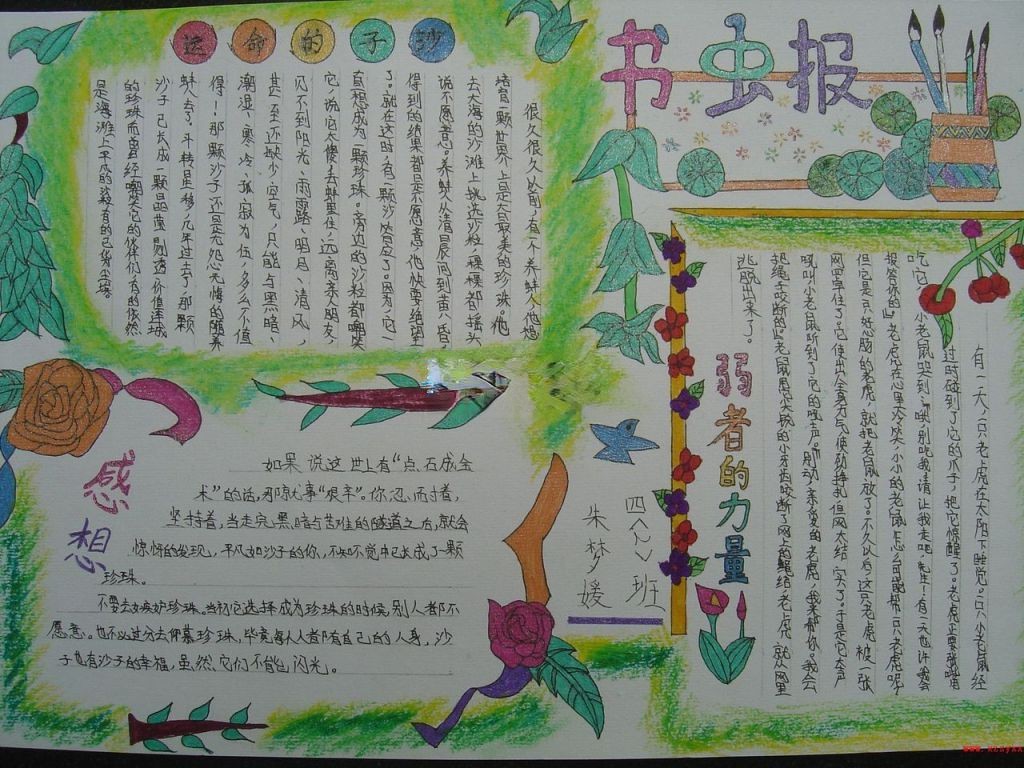 书虫报
沙子的命运
很久很久以前，有一个养蚌人，他想
培育一颗世界上最大最美的珍珠。他
去大海的沙滩上挑选沙粒，一颗一颗都摇头
说不愿意。养蚌人从清晨问到黄昏，
得到的结果都是不愿意，他快要绝望
了。就在这时，有一颗沙答应了。因为，它一
直想成为一颗珍珠。旁边的沙粒都嘲笑
它，说它太傻，去蚌里住，远离亲人朋友，
见不到阳光、雨露、明月、清风，
甚至还缺少空气，只能与黑暗、
潮湿、寒冷、孤寂为伍，多么不值
得！那颗沙子还是无怨无悔的随养
蚌人去了。斗转星移，几年过去了，那颗
沙子已长成一颗晶莹剔透、价值连城
的珍珠，而曾经嘲笑它的伙伴们，有的依然
是海滩上平凡的沙粒，有的已化为尘埃
弱者的力量
有一天，一只老虎在太阳下睡觉。一只小老鼠经
过时碰到了它的爪子，把它惊醒了。老虎正要张嘴
吃它，小老鼠哭到：“哦，别吃我，请让我走吧，先生！有一天也许我会
报答你的。”老虎在心里大冷笑，小小的老鼠怎么可能帮一只老虎呢？
但它是只好心肠的老虎，就把老鼠放了。不久以后，这只老虎被一张
网罩住了。它使出全身力气使劲挣扎，但网太结实了。于是它大声
吼叫，小老鼠听到了它的吼声。“别动，亲爱的老虎，我来帮你。我会
把绳子咬断的。”老鼠用尖锐的小牙齿咬断了网上的绳结，老虎就从网里
逃脱出来了。
感想
如果说这世上有“点石成金
术”的话，那就事“艰辛”。你忍耐着，
坚持着，当走完黑暗与苦难的隧道之后，就会
惊讶的发现，平凡如沙子的你，不知不觉中已长成了一颗
珍珠。
不要去嫉妒珍珠，当初它选择成为珍珠的时候，别人都不
愿意。也不必过分去仰慕珍珠，毕竟每人人者都有自己的人身，沙
子也有沙子的幸福，虽然它们不能闪光。
四〈〉班
朱梦媛